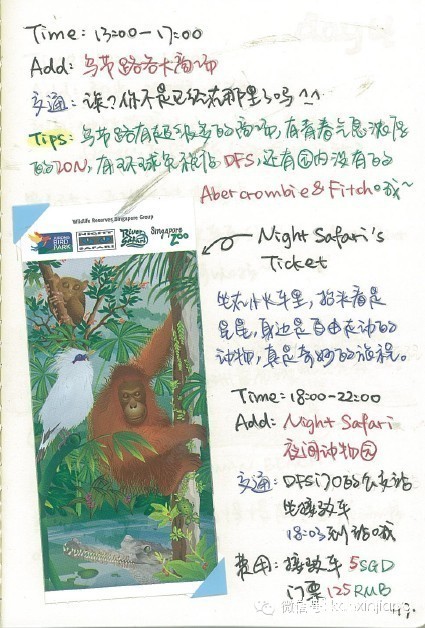 Time: 13:00-17:00
Add: 乌节路各大商场
交通: 诶?你不是已经在那里了吗^^
Tips: 乌节路有超级多的商场,有青春气息浓厚
的ION,有环球免税店DFS,还有国内没有的
Abercrombie & Fitch哦~
Wildlife Reserves Singapore Group
JURONG BIRD PARK
NIGHT SAFARI
River Safari
Singapore Zoo
Night Safari's
Ticket
坐在小火车里,抬头看是
星星,身边是自由走动的
动物,真是奇妙的旅程。
Time: 18:00-22:00
Add: Night Safari
夜间动物园
交通: DFS门口的公交站
坐接驳车
18:03到站哦
费用: 接驳车 5SGD
门票 125RMB
微信号: